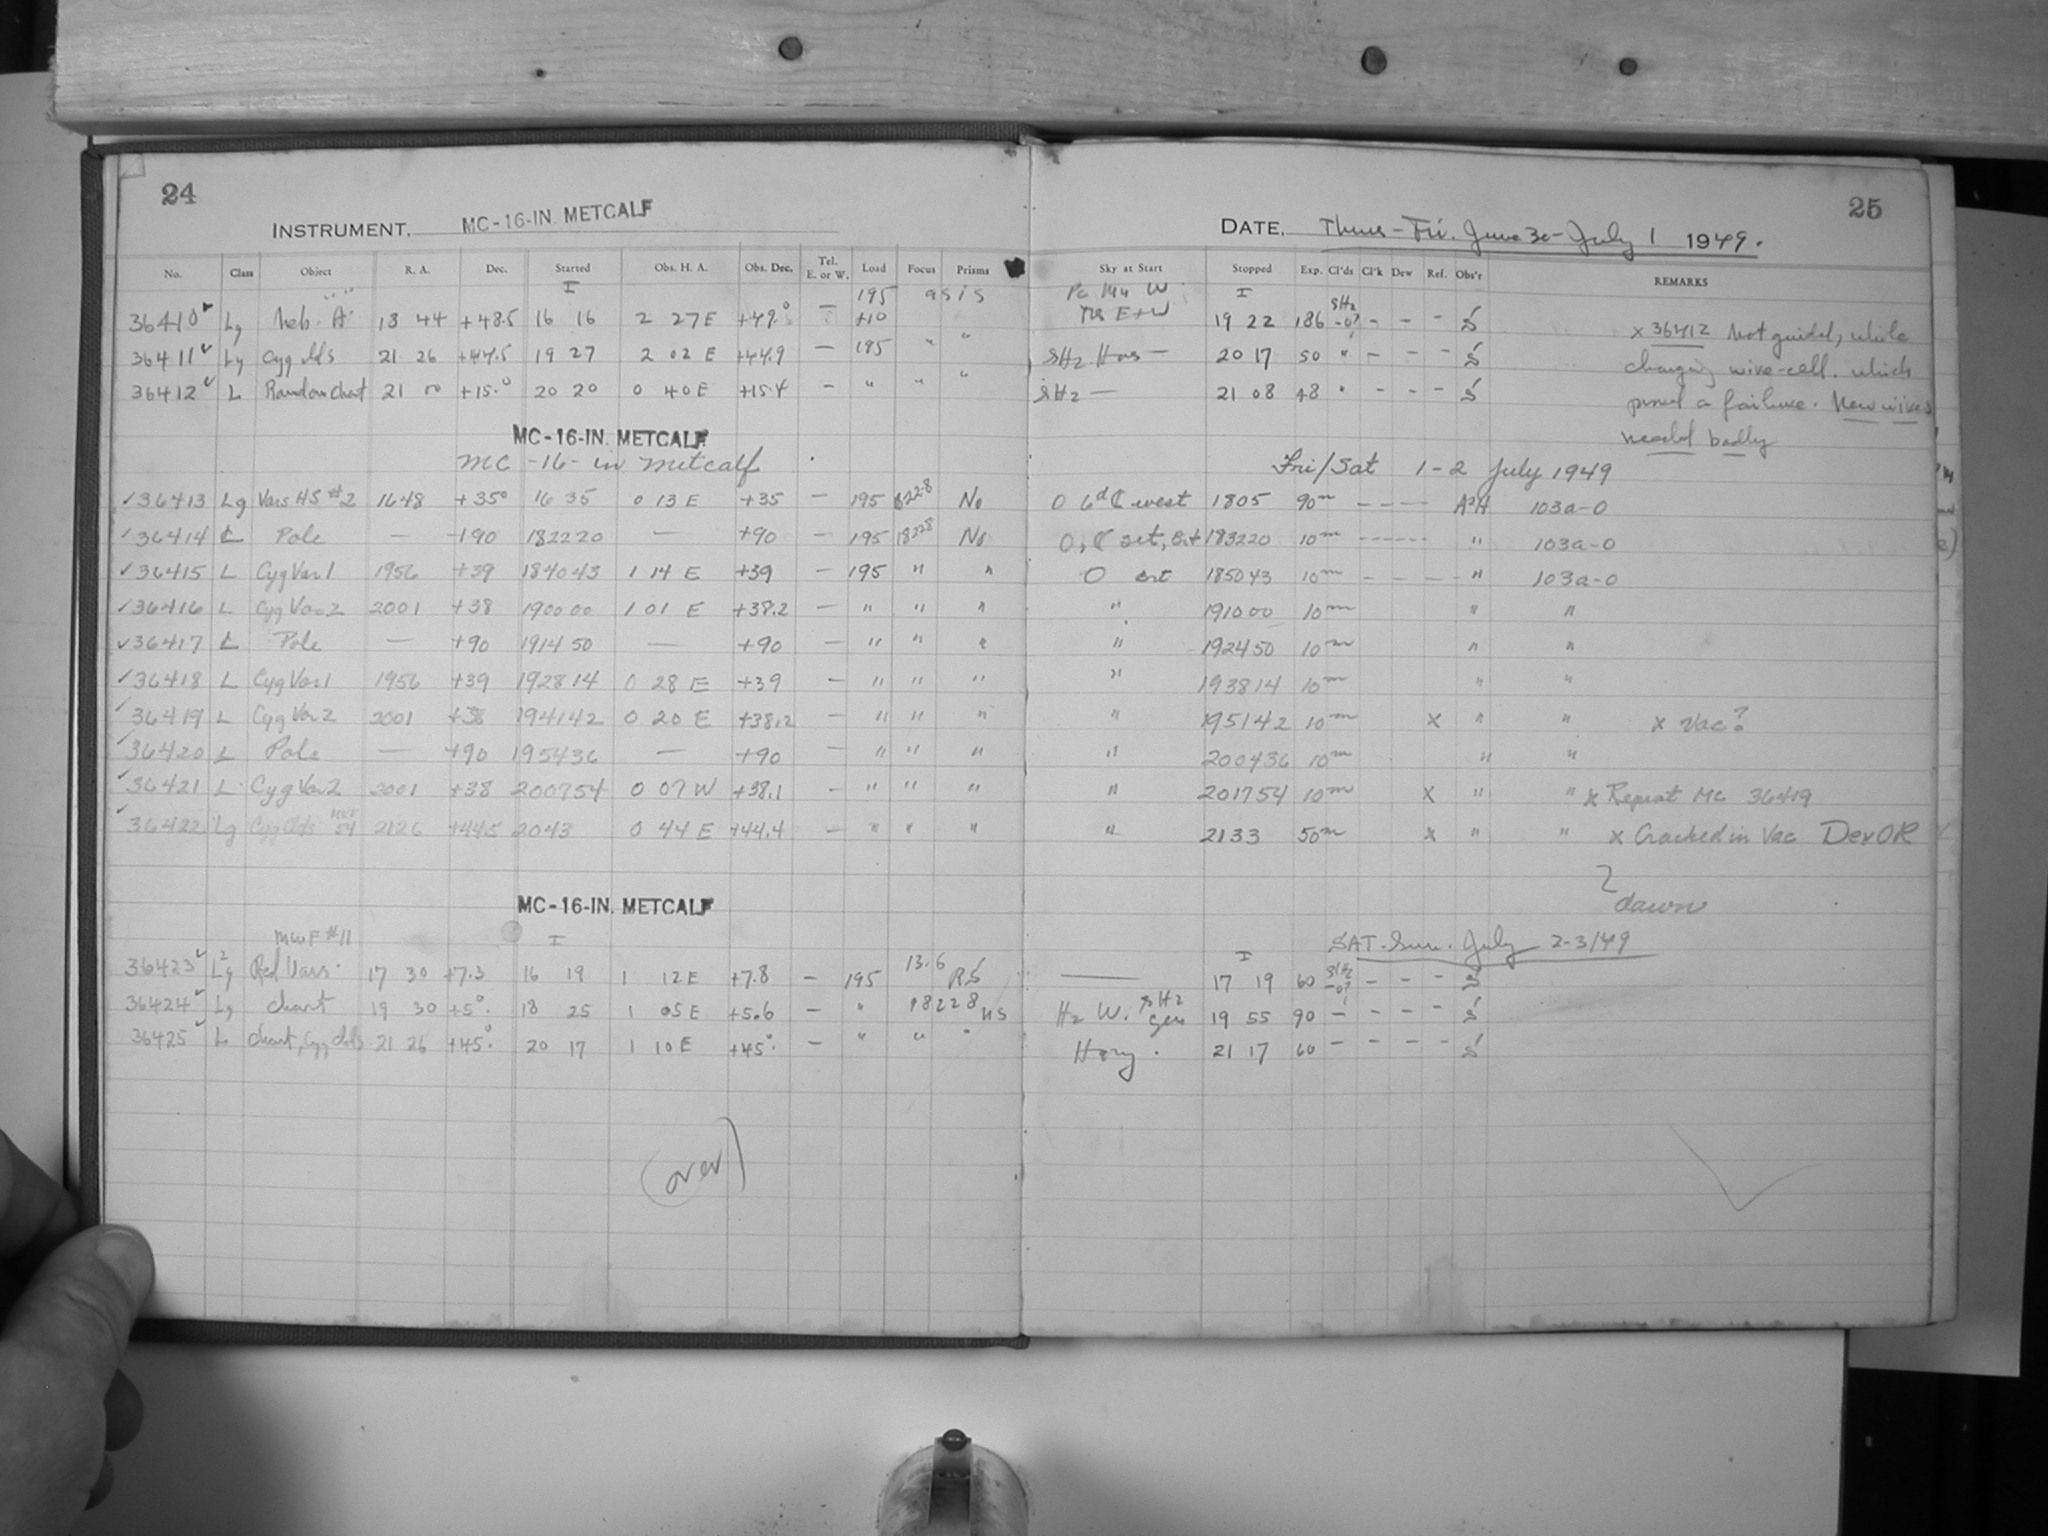 24
INSTRUMENT, MC-16-IN. METCALF
No. Class Object R. A. Dec. Started Obs. H. A. Obs. Dec. Tel. E. or W. Load Focus Prisms
I 195 as is
36410 Lg Neb. A 18 44 +48.5 16 16 2 27 E +49.° — +10
36411 Lg Cyg clds 21 26 +44.5 19 27 2 02 E +44.9 — 195 " "
36412 L Random Chart 21 00 +15.° 20 20 0 40 E +15.4 — " " "
MC-16-IN. METCALF
MC-16-in Metcalf
✓36413 Lg Vars HS #2 1648 +35° 16 35 0 13 E +35 — 195 No
✓36414 L Pole — +90 182220 — +90 — 195 18228 No
✓36415 L Cyg Var 1 1956 +39 184043 1 14 E +39 — 195 " "
✓36416 L Cyg Var 2 2001 +38 190000 1 01 E +38.2 — " " "
✓36417 L Pole — +90 191450 — +90 — " " "
✓36418 L Cyg Var 1 1956 +39 192814 0 28 E +39 — " " "
✓36419 L Cyg Var 2 2001 +38 194142 0 20 E +38.2 — " " "
✓36420 L Pole — +90 195436 — +90 — " " "
✓36421 L Cyg Var 2 2001 +38 200754 0 07 W +38.1 — " " "
✓36422 Lg Cyg Clds 2126 +445 2043 0 44 E +44.4 — " " "
MC-16-IN. METCALF
MWF #11 I
36423 Lg Red Vars. 17 30 +7.3 16 19 1 12 E +7.8 — 195 13.6 RS
36424 Lg chart 19 30 +5° 18 25 1 05 E +5.6 — " 18228
36425 L chart, Cyg clds 21 26 +45° 20 17 1 10 E +45° — " " "
(over)
25
DATE, Thurs-Fri. June 30-July 1 1949.
Sky at Start Stopped Exp. Cl'ds Cl'k Dew Ref. Obs'r REMARKS
I SH2
E+W 19 22 186 -0? - - - S x 36412 Not guided, while
SH2 — 20 17 50 " - - - S changing wire-cell. which
SH2 — 21 08 48 " - - - S proved a failure. New wires
needed badly
Fri/Sat 1-2 July 1949
0 6d ☾ west 1805 90m ---- A2H 103a-0
0, ☾ set, 183220 10m ------ " 103a-0
0 185043 10m - - - - " 103a-0
" 191000 10m " "
" 192450 10m " "
" 193814 10m " "
" 195142 10m x " " x Vac?
" 200436 10m " "
" 201754 10m x " " x Repeat MC 36419
" 2133 50m x " " x Cracked in Vac Dev OR
dawn
SAT-Sun. July 2-3/49
I
— 17 19 60 - - - S
Hz W. SH2 gen 19 55 90 - - - - S
Hazy. 21 17 60 - - - - S